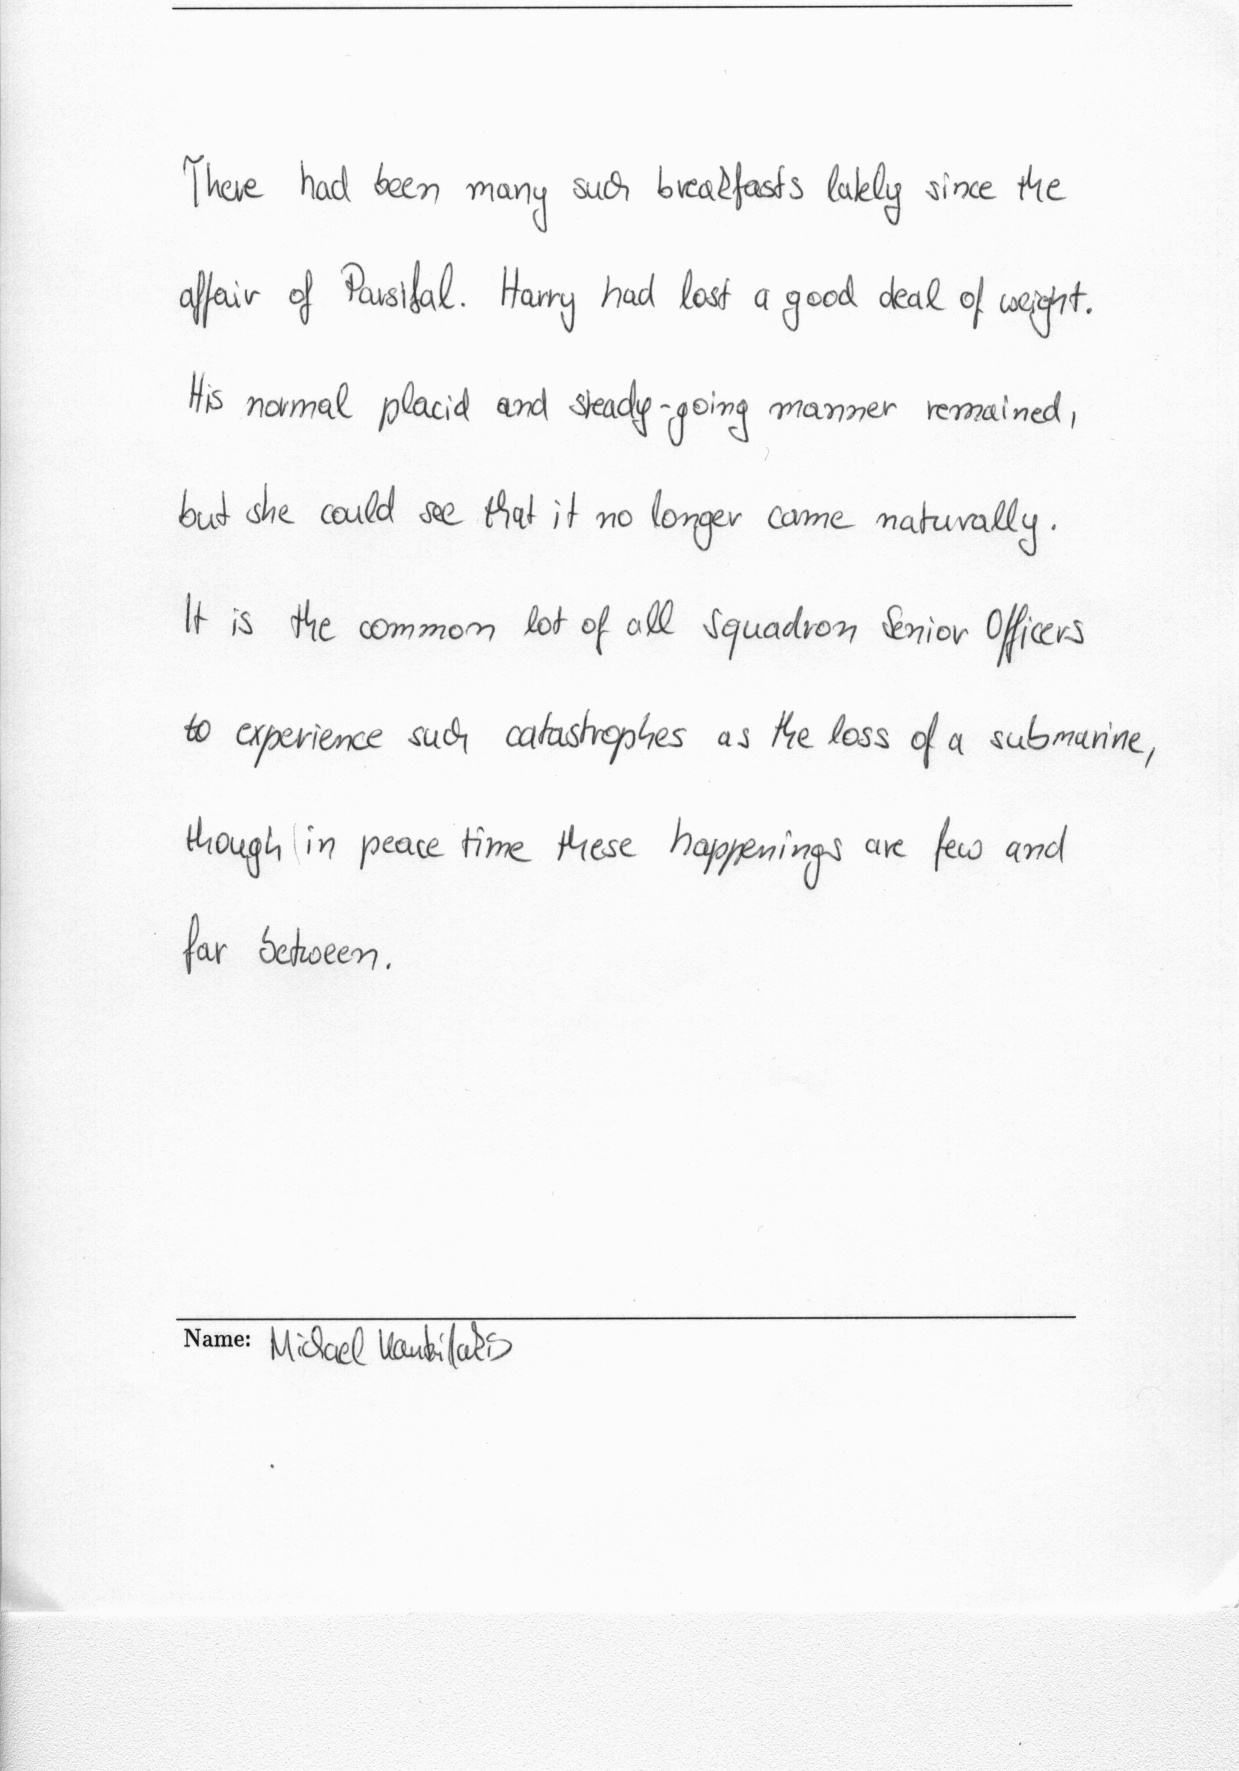 There had been many such breakfasts lately since the
affair of Parsifal. Harry had lost a good deal of weight.
His normal placid and steady-going manner remained,
but she could see that it no longer came naturally.
It is the common lot of all Squadron Senior Officers
to experience such catastrophes as the loss of a submarine,
though in peace time these happenings are few and
far between.
Name: Michael